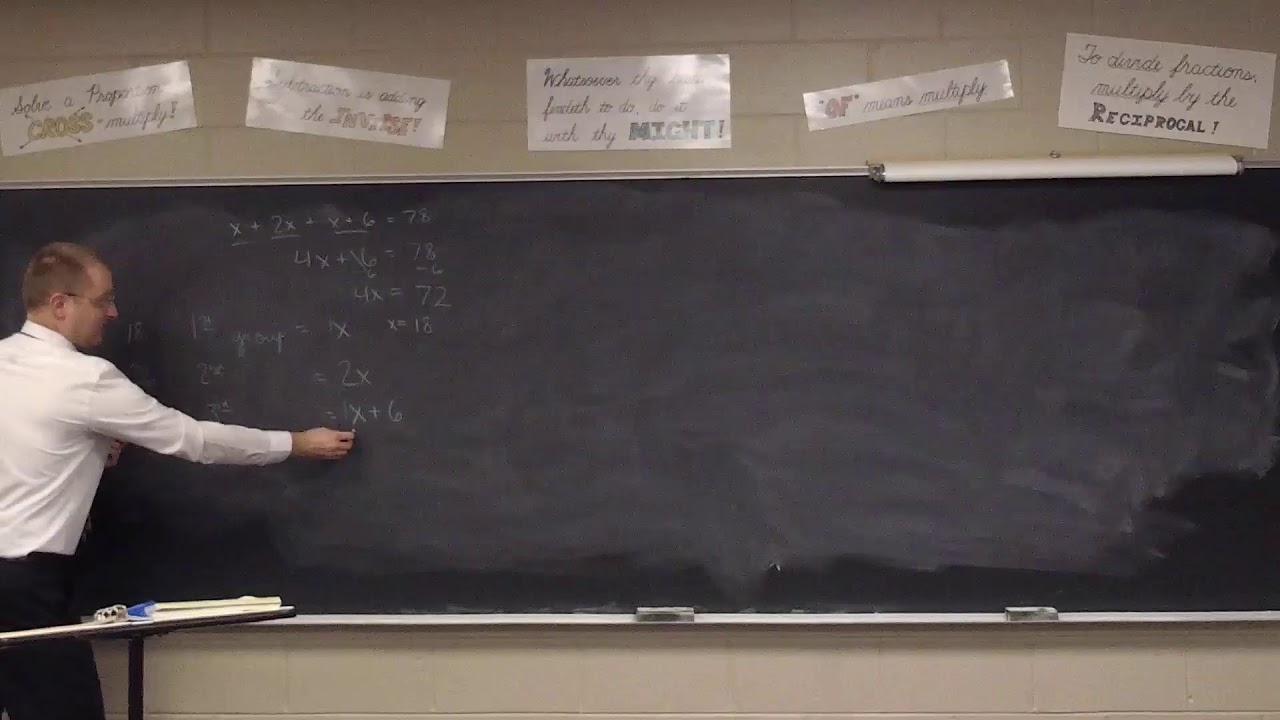 Solve a Proportion
CROSS-multiply!
Subtraction is adding
the INVERSE!
Whatsoever thy hand
findeth to do, do it
with thy MIGHT!
"OF" means multiply
To divide fractions,
multiply by the
RECIPROCAL!
x + 2x + x + 6 = 78
4x + 6 = 78
-6
4x = 72
x = 18
18 1st group = 1x
2nd = 2x
= 1x + 6